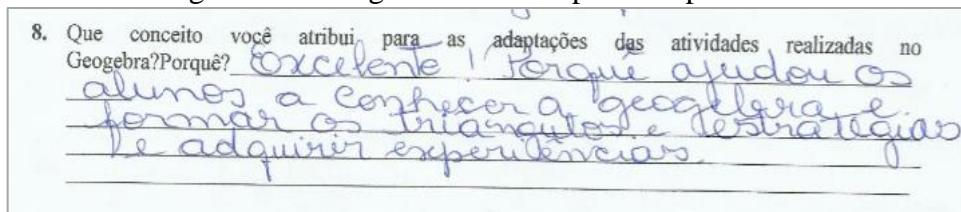 8. Que conceito você atribui para as adaptações das atividades realizadas no
Geogebra?Porquê? Excelente! Porque ajudou os
alunos a conhecer o geogebra e
formar os triângulos e estratégias
e adquirir experiências.